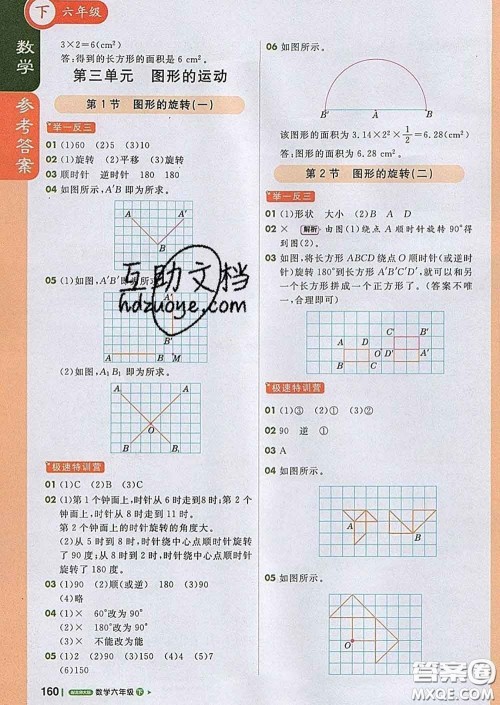 下 六年级
数学
参考答案
3×2=6(cm²)
答:得到的长方形的面积是6 cm²。
第三单元 图形的运动
第1节 图形的旋转(一)
举一反三
01 (1)60 (2)5 (3)10
02 (1)旋转 (2)平移 (3)旋转
03 顺时针 逆时针 180 180
04 如图所示,A′B即为所求。
A A′
B
05 (1)如图,A′B′即为所求。
A′
B′
A B M
(2)如图,A₁B₁即为所求。
A A
O
B B
极速特训营
01 (1)C (2)B (3)D
02 (1)第1个钟面上,时针从6时走到8时;第2个
钟面上,时针从8时走到11时。
第2个钟面上的时针旋转的角度大。
(2)从5时到8时,时针绕中心点顺时针旋转
了90度;从6时到12时,时针绕中心点顺
时针旋转了180度。
03 (1)90 (2)顺(或逆) 180 (3)90
(4)略
04 (1)× 60°改为90°
(2)× 180°改为90°
(3)× 不能改为能
05 (1)√ (2)√ (3)√ (4)√
160 数学六年级 下
06 如图所示。
B′ A B
该图形的面积为3.14×2²×1/2=6.28(cm²)
答:面积为6.28 cm²。
第2节 图形的旋转(二)
举一反三
01 (1)形状 大小 (2)B A D
02 × 解析 由图(1)绕点A顺时针旋转90°得
到图(2)。
03 如图,将长方形ABCD绕点O顺时针(或逆时
针)旋转180°到长方形A′B′C′D′,就可以和另
一个长方形拼成一个正方形。(答案不唯
一,合理即可)
C′ B′
A D
O D′ A′
B C
极速特训营
01 (1)③ (2)① (3)②
02 90 逆 ①
03 A
04 如图所示。
A
B
05 如图所示。
O
互助文档
hdzuoye.com
答案圈
MXQE.COM